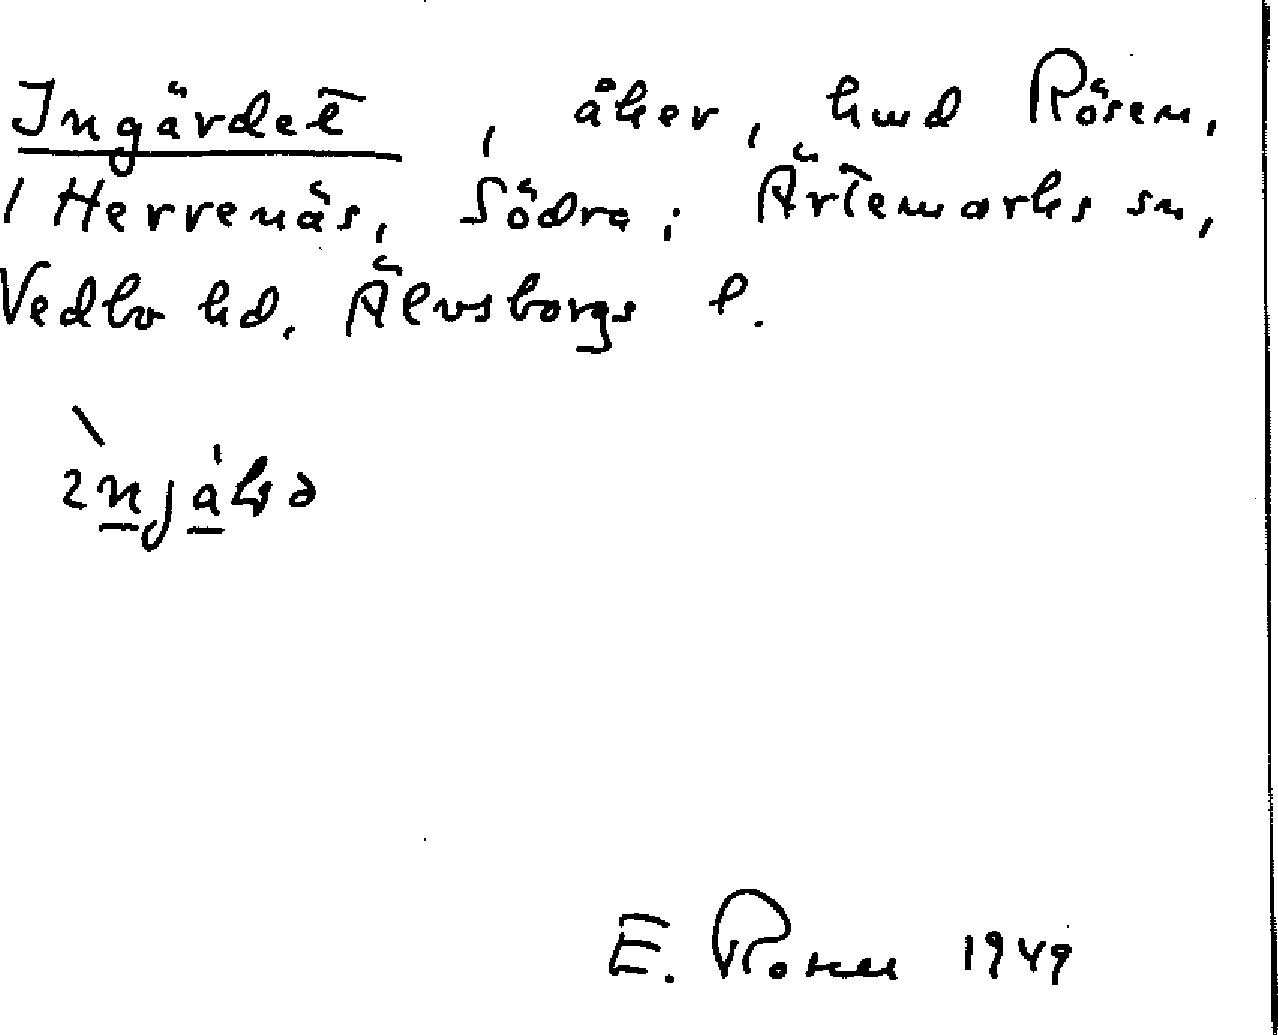 Ingärdet, åker, hmd Rösen,
1 Herrenäs, Södra; Ärtemarks sn,
Vedbo hd. Älvsborgs l.
E. Rosen 1949